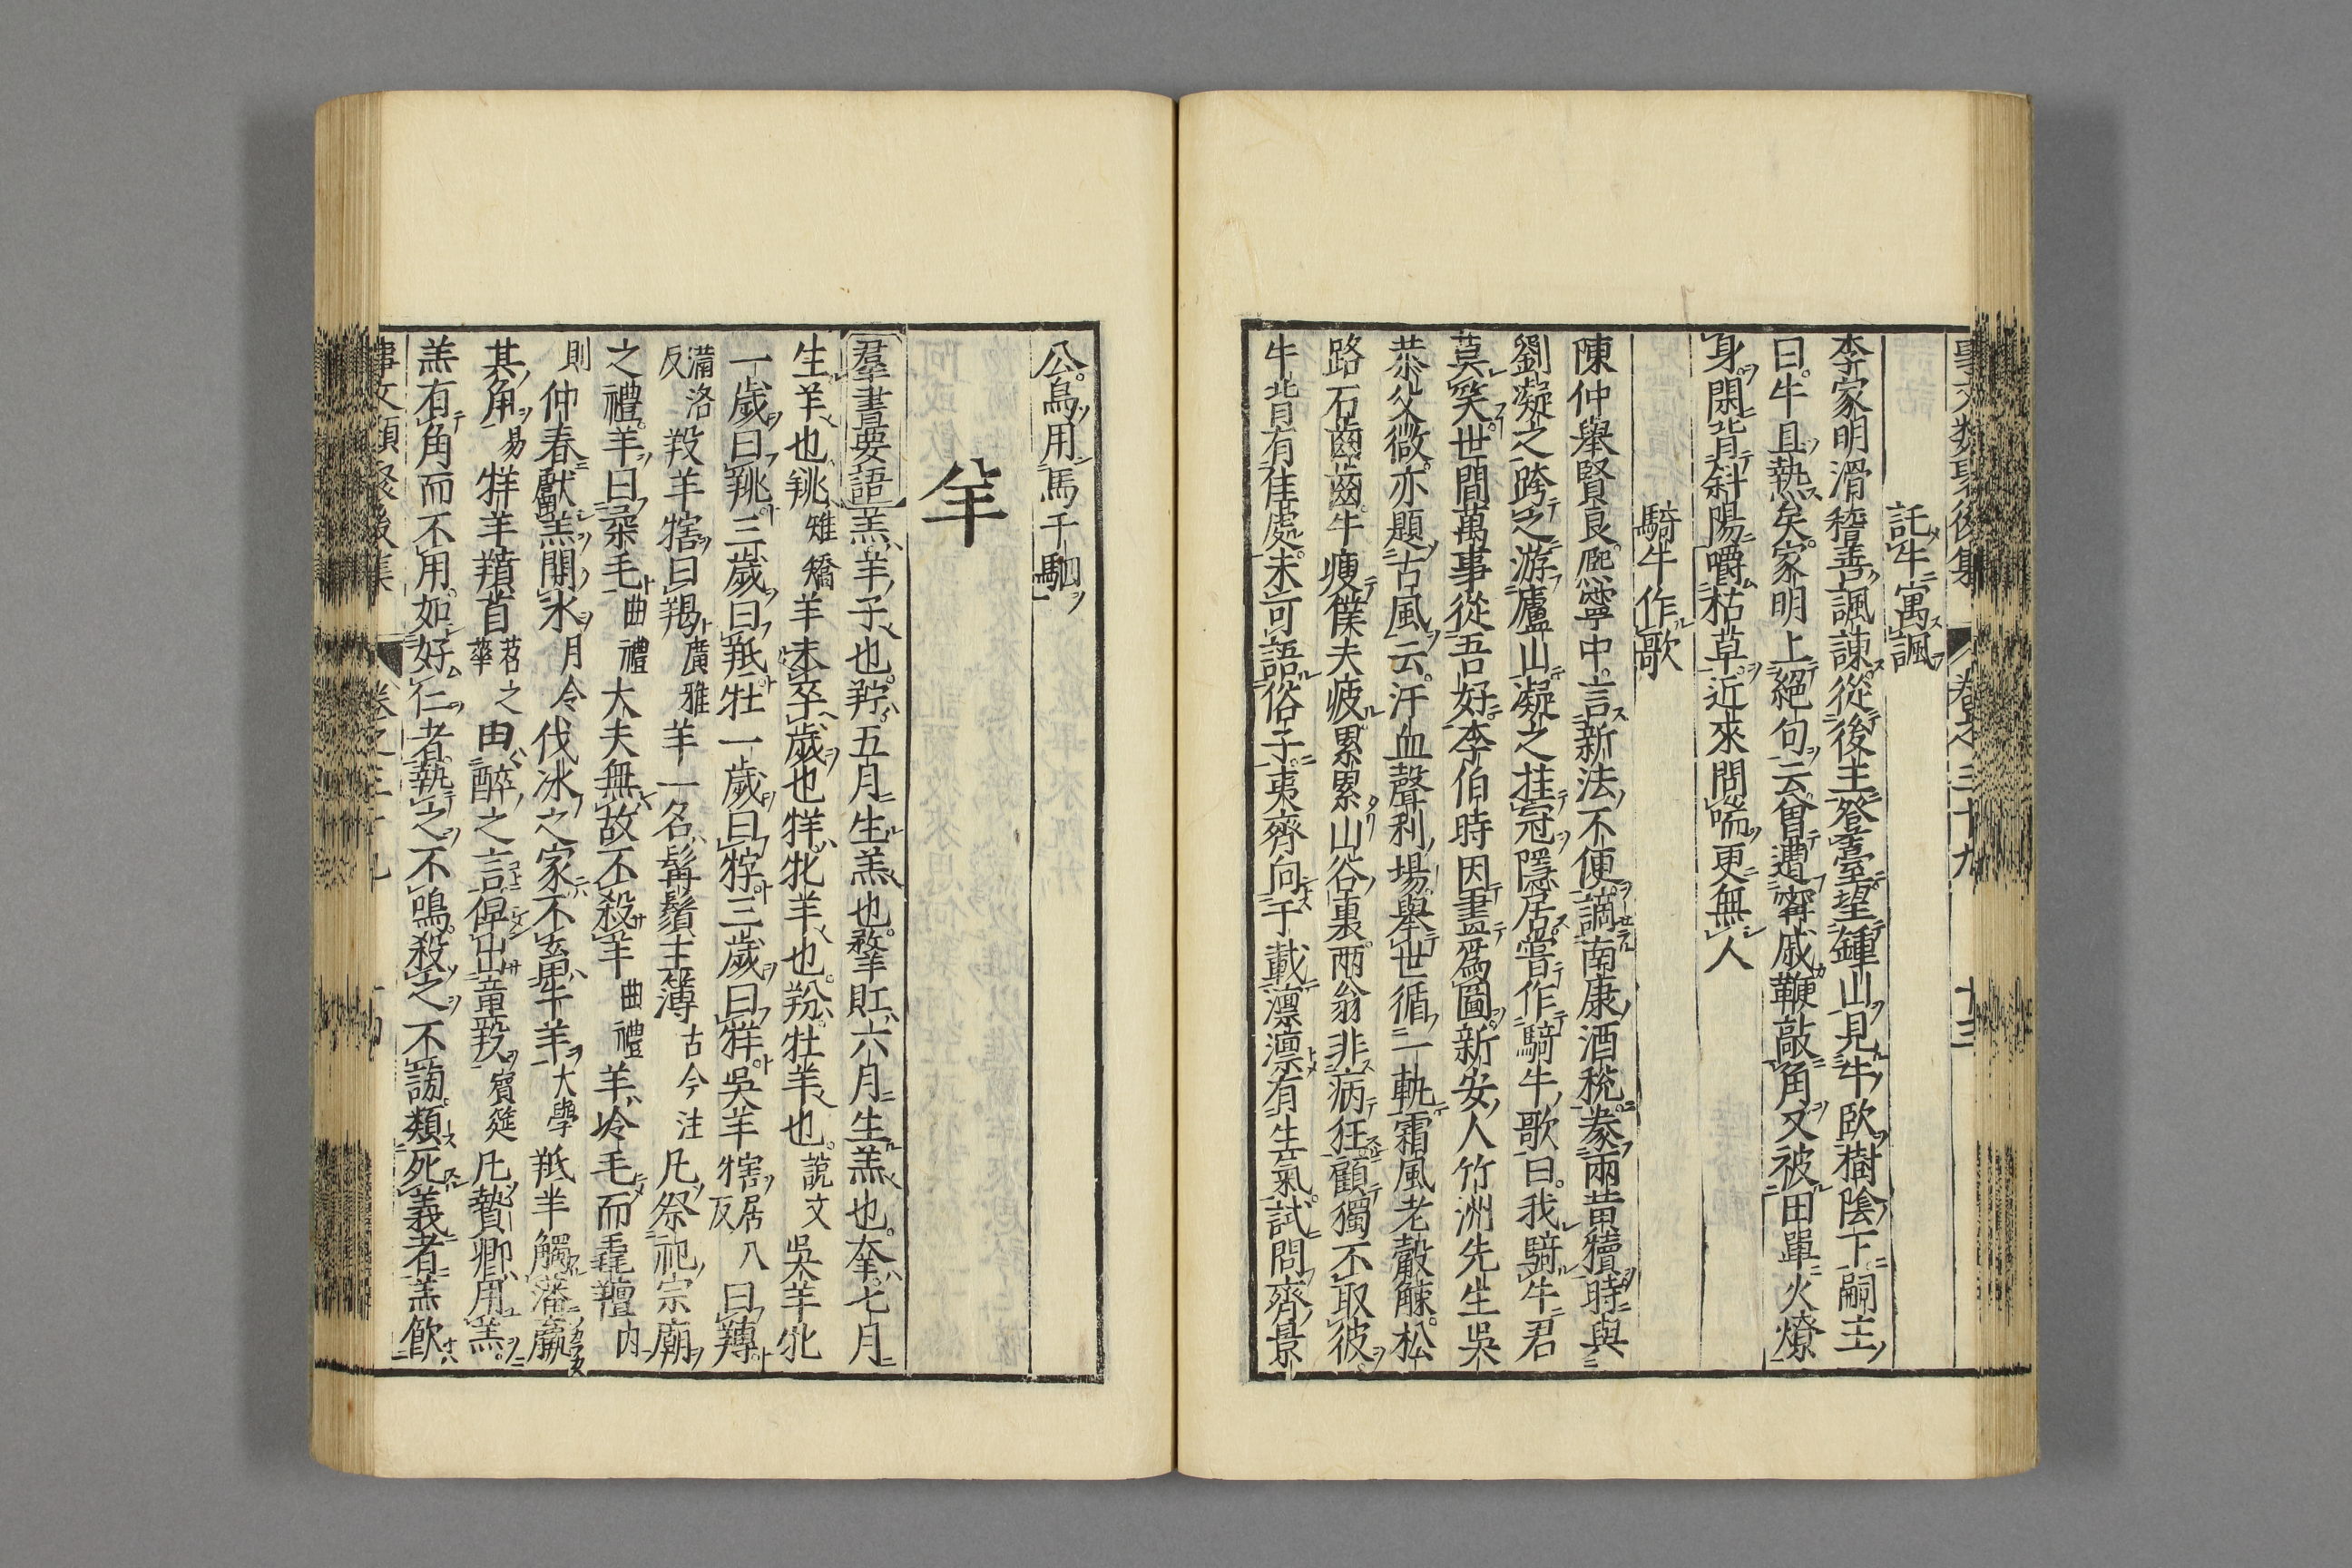 事文類聚後集 卷之三十九 十三
託牛寓諷
李家明滑稽善諷諫從後主登臺望鍾山見牛臥樹陰下嗣主
曰牛且熱矣家明上絕句云曾遭甯戚鞭敲角又被田單火燎
身閑背斜陽嚼枯草近來問喘更無人
騎牛作歌
陳仲舉賢良熈寧中言新法不便謫南康酒稅豢兩黃犢時與
劉凝之跨之游廬山凝之挂冠隱居嘗作騎牛歌曰我騎牛君
莫笑世間萬事從吾好李伯時因畫爲圖新安人竹洲先生吳
恭父儆亦題古風云汗血聲利場舉世循一軌霜風老觳觫松
路石齒齒牛瘦僕夫疲累累山谷裏兩翁非病狂顧獨不取彼
牛背有佳處未可語俗子夷齊向千載凛凛有生氣試問齊景
公爲用馬千駟
羊
羣書要語 羔羊子也羜五月生羔也䍮六月生羔也羍七月
生羊也𦍩雉矯羊未卒歲也牂牝羊也羒牡羊也說文吳羊牝
一歲曰𦍩三歲曰羝牡一歲曰牸三歲曰牂吳羊犗居八反曰羯
滿洛反羖羊犗曰羯廣雅羊一名髯鬚主薄古今注凡祭祀宗廟
之禮羊曰柔毛曲禮大夫無故不殺羊曲禮羊泠毛而毳羶内
則仲春獻羔開冰月令伐冰之家不畜牛羊大學羝羊觸藩羸
其角易牂羊羵首苕之華由醉之言俾出童羖賓筵凡贄卿用羔
羔有角而不用如好仁者執之不鳴殺之不謗類死義者羔飲
事文類聚後集 卷之三十九